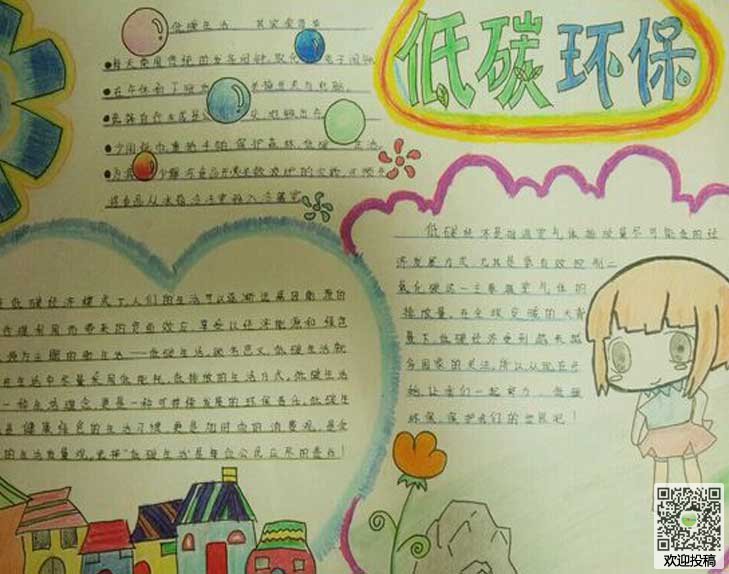 低碳环保
低碳生活 其实很简单
●每天使用传统的发条闹钟，取代电子闹钟
●在午休和下班
●少用纸巾，重拾手帕，保护森林，低碳生活
低碳经济是指温室气体排放量尽可能低的经
济发展方式，尤其是要有效控制二
氧化碳这一主要温室气体的
排放量。在全球变暖的大背
景下，低碳经济受到越来越
多国家的关注。所以，从现在开
始，让我们一起努力，低碳
环保，保护我们的世界吧！
低碳经济模式下，人们的生活可以逐渐远离因能源的
利用而带来的负面效应，享受以经济能源和绿色
能源为主题的新生活——低碳生活。顾名思义，低碳生活就
在生活中尽量采用低能耗、低排放的生活方式。低碳生活
一种生活理念，更是一种可持续发展的环保责任。低碳生
是健康绿色的生活习惯，更是加时尚的消费观，是全
的生活质量观。选择"低碳生活"是每位公民应尽的责任！
欢迎投稿